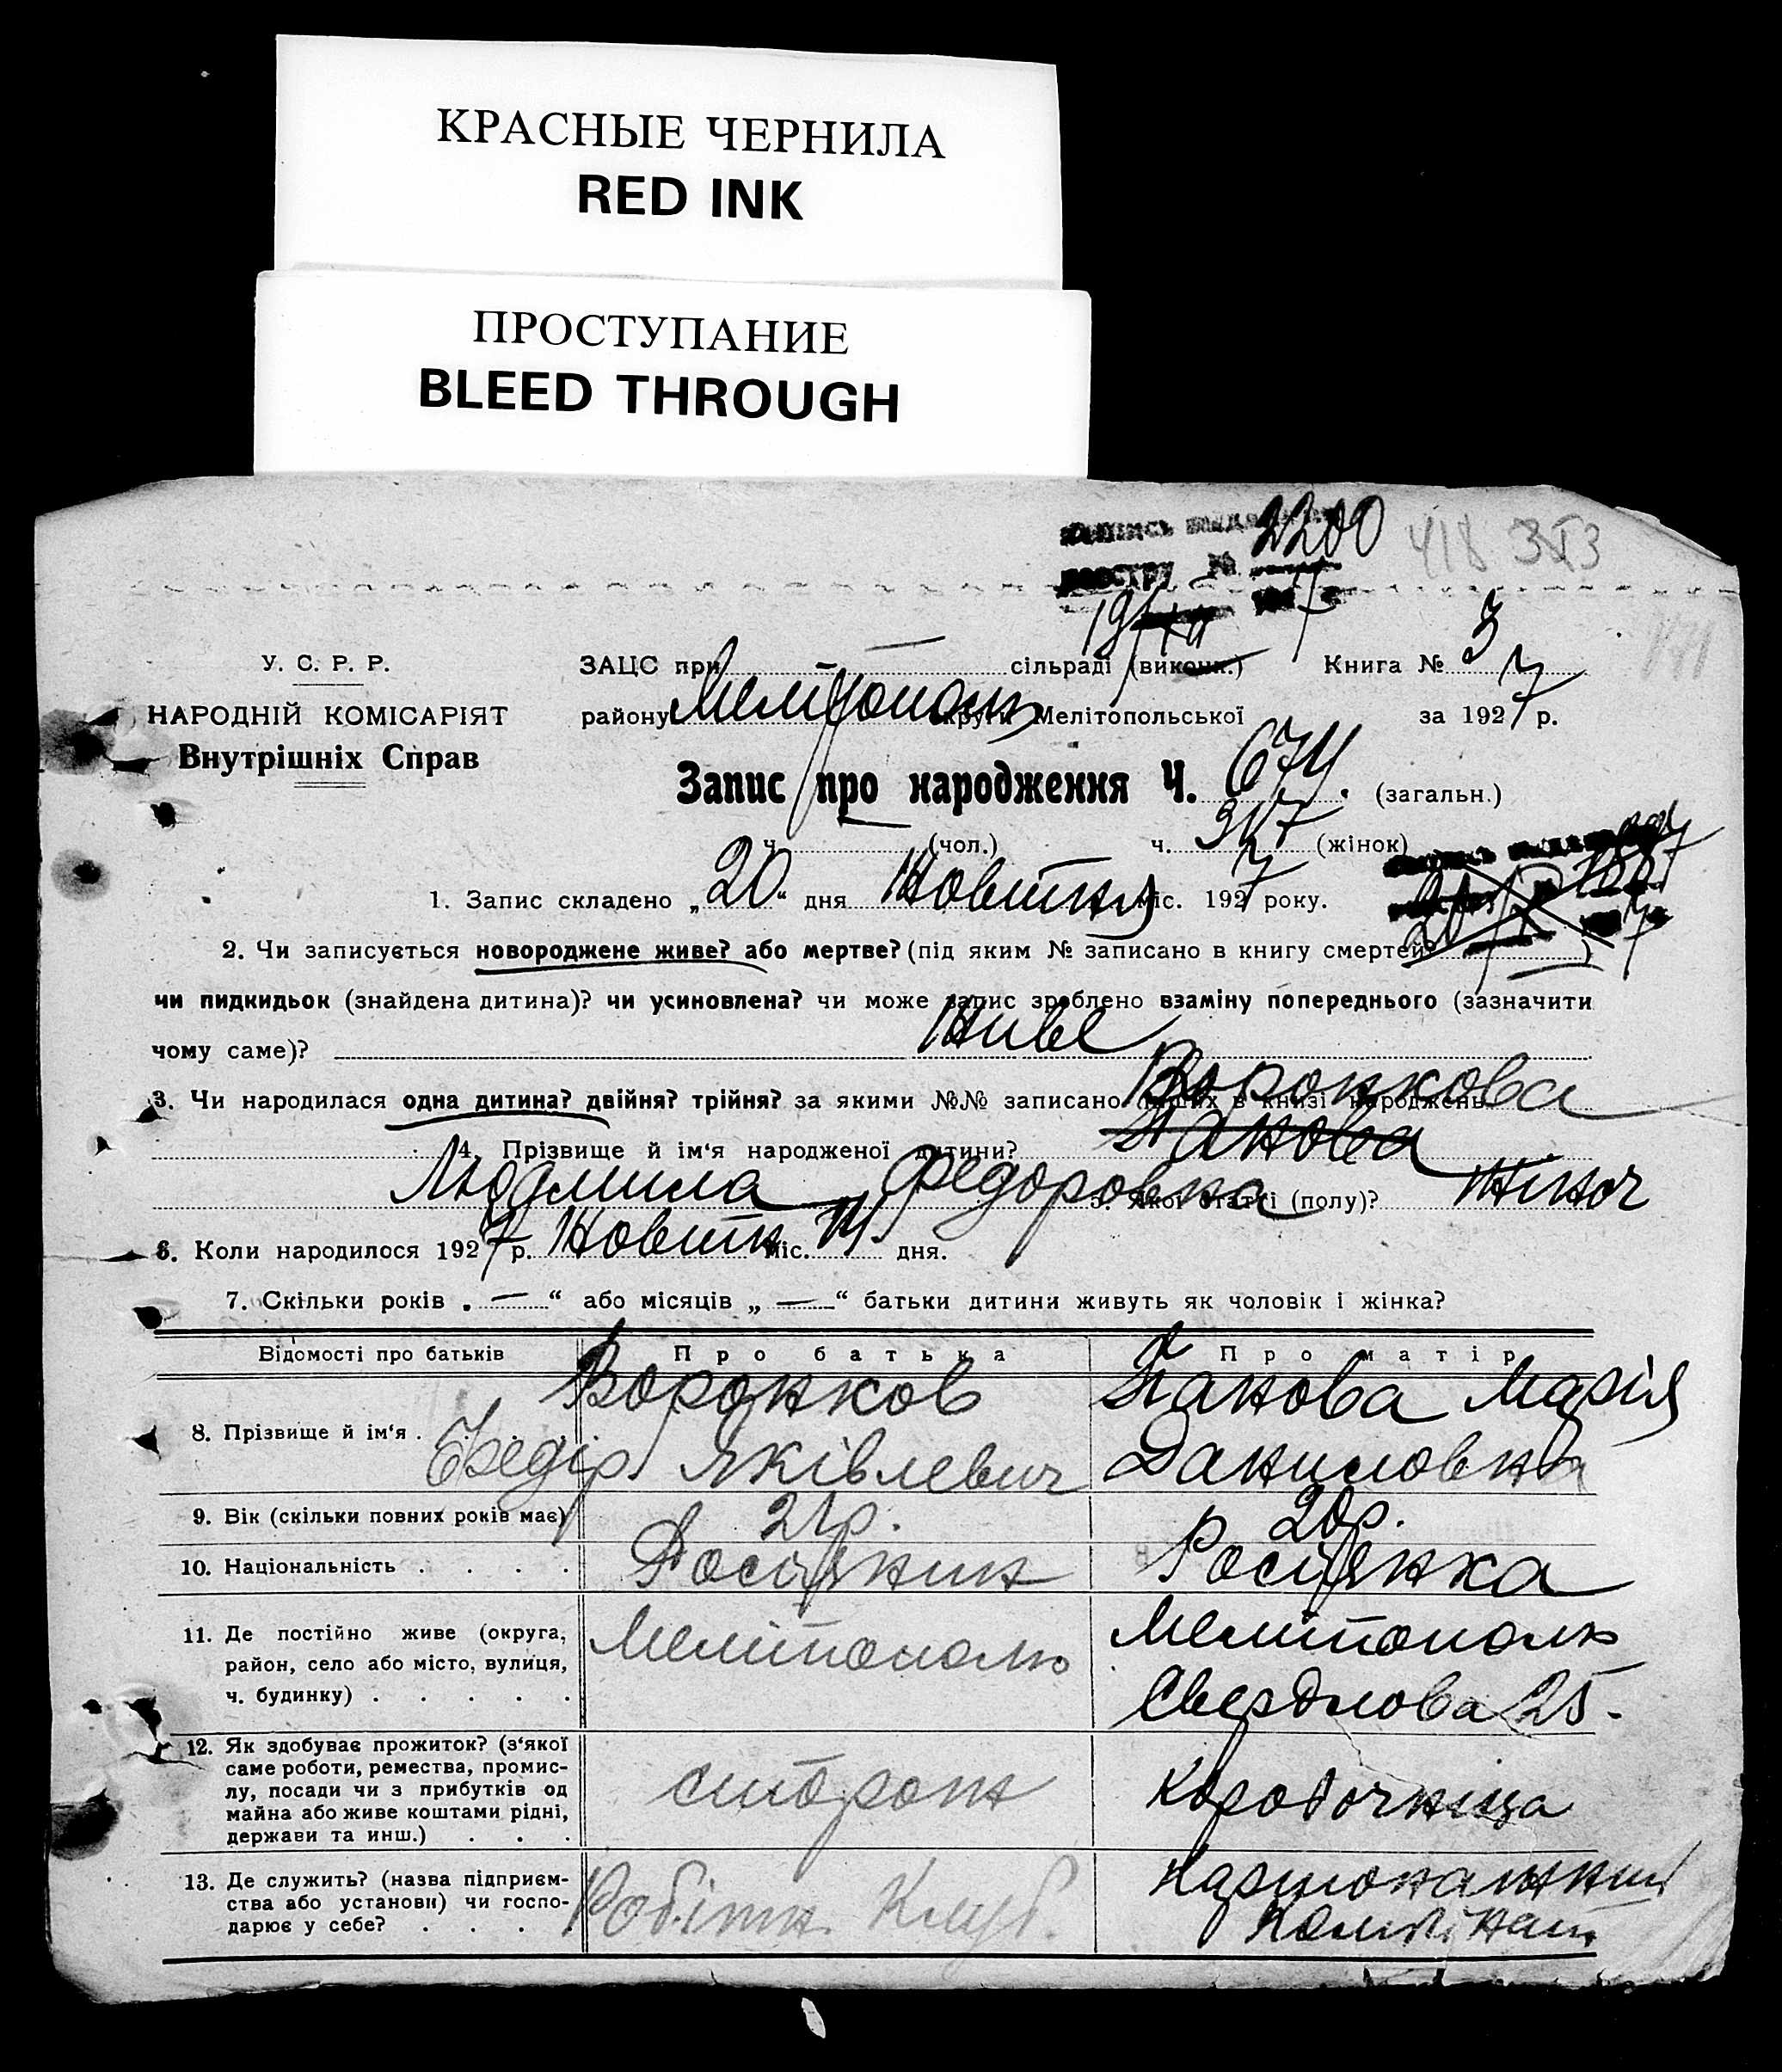 КРАСНЫЕ ЧЕРНИЛА
RED INK
ПРОСТУПАНИЕ
BLEED THROUGH
2200 418
реєстру №
У. С. Р. Р. ЗАЦС при — сільраді (викопк.) Книга № 3
НАРОДНІЙ КОМІСАРІЯТ району Мелітополь округи Мелітопольської за 1927 р.
Внутрішніх Справ
Запис про народження Ч. 674. (загальн.)
ч. (чол.) ч. 317 (жінок)
1. Запис складено „20“ дня Жовтня міс. 1927 року.
2. Чи записується новороджене живе? або мертве? (під яким № записано в книгу смертей? )
чи пидкидьок (знайдена дитина)? чи усиновлена? чи може запис зроблено взаміну попереднього (зазначити
чому саме)? Живе
3. Чи народилася одна дитина? двійня? трійня? за якими №№ записано інших в книзі народжень
Воронкова
4. Прізвище й ім‘я народженої дитини? Панова
Людмила Федоровна 5. Якої статті (полу)? Жіноч
6. Коли народилося 1927 р. Жовтн міс. 14. дня.
7. Скільки років „ — “ або місяців „ — “ батьки дитини живуть як чоловік і жінка?
Відомості про батьків Про батька Про матір
8. Прізвище й ім‘я . Воронков Панова Марія
Федір Яківлевич Даниловна
9. Вік (скільки повних років має) 21р. 20р.
10. Національність . . . . Росіянин Росіянка
11. Де постійно живе (округа, Мелітополь Мелітополь
район, село або місто, вулиця,
ч. будинку) . . . . . Свердлова 25.
12. Як здобуває прожиток? (з‘якої
саме роботи, ремества, промис-
лу, посади чи з прибутків од сторож Коробочниця
майна або живе коштами рідні,
держави та инш.) . . .
13. Де служить? (назва підприєм-
ства або установи) чи госпо- Робітн. Клуб.
дарює у себе? . . .